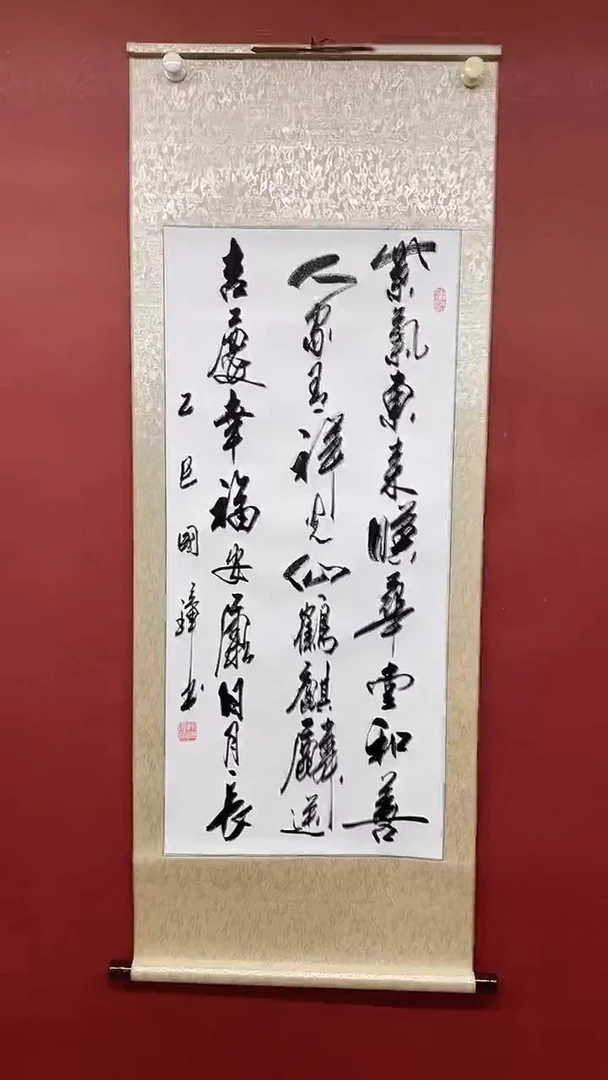 紫氣東來暎華堂和善
人家呈祥光仙鶴麒麟送
吉慶幸福安康日月長
乙巳國璋書